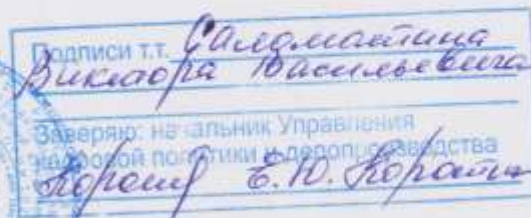 Подписи т.т. Саломатина
Виктора Васильевича
Заверяю: начальник Управления
кадровой политики и делопроизводства
Е.Ю.